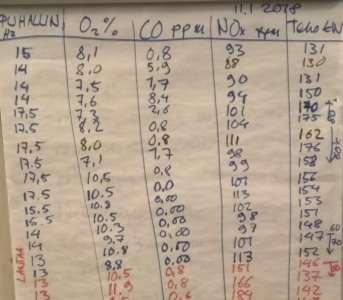 11.1 2018
PUHALLIN Hz O₂% CO ppm NOx ppm Teho kW
15 8,1 0,8 93 131
14 8,0 5,9 88 130
14 7,5 1,7 90 131
14 7,6 8,4 94 150
17,5 7,3 2,6 101 170
17.5 8.2 0,8 104 175
17.5 8,0 0.8 111 162
17.5 7,1 1,7 98 176
17,5 10,5 0.8 99 158
17,5 10.5 0.0 101 156
15.5 10.8 0,00 113 154
16.5 10.5 0,00 102 153
14 10.3 0,00 98 151
14 9.7 0,00 97 148
13 10.8 0,00 101 147
13 8.8 0,00 113 152
13 10.5 0,8 151 146
13 11.9 0,8 166 137
13 0,6 184 142